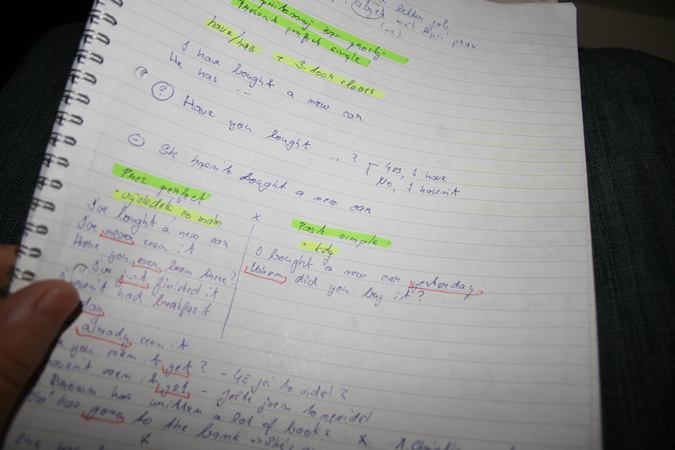 přítomný čas prostý
present perfect simple
have/has + 3. tvar slovesa
I have bought a new car
He has ...
? Have you bought ....? Yes, I have
No, I haven't
- She hasn't bought a new car
Pres perfect x Past simple
• výsledek co mám • kdy
I've bought a new car
I've never seen it
Have you ever been there?
I've just finished it
haven't had breakfast
I bought a new car yesterday
When did you buy it?
already seen it
you seen it yet? - Už jsi to viděl?
haven't seen it yet - ještě jsem to neviděl
has written a lot of books x A. Christie
has gone to the bank => She's